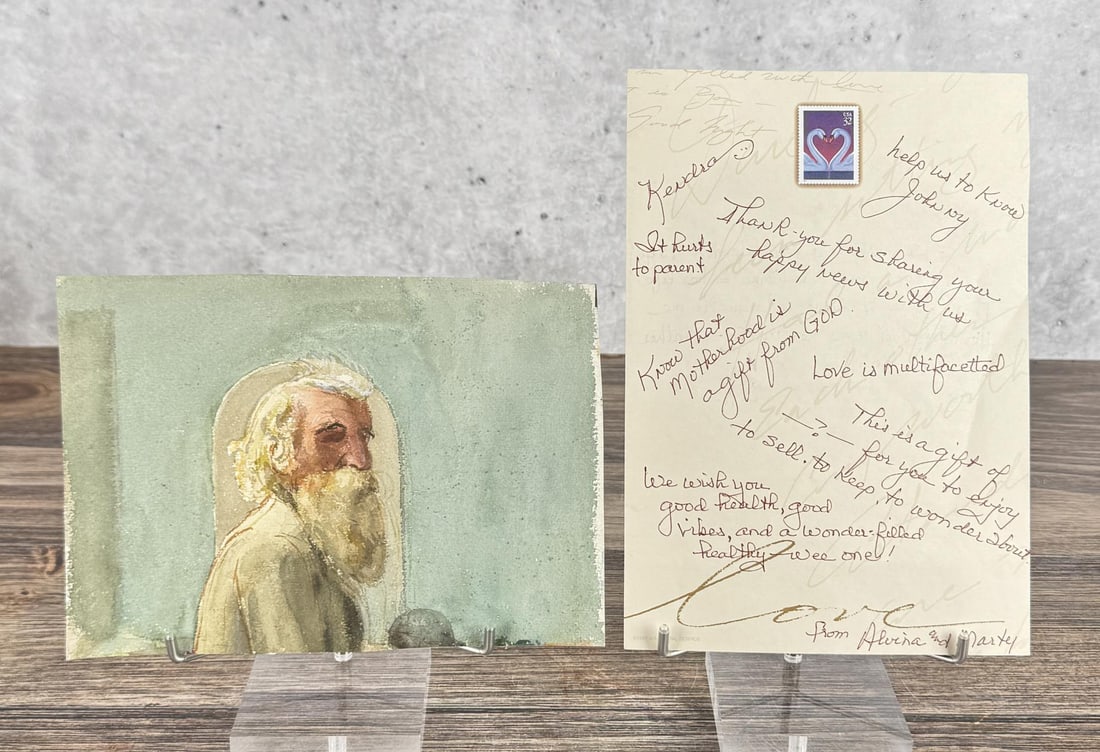 Good Night
USA
32
Kendra
help us to Know
Johnny
Thank-you for sharing your
happy news with us
It hurts
to parent
Know that
Motherhood is
a gift from GOD.
Love is multifacetted
This is a gift of
—?— for you to enjoy
to sell, to keep, to wonder about
We wish you
good health, good
vibes, and a wonder-filled
healthy wee one!
Love
from Alvina and Marty